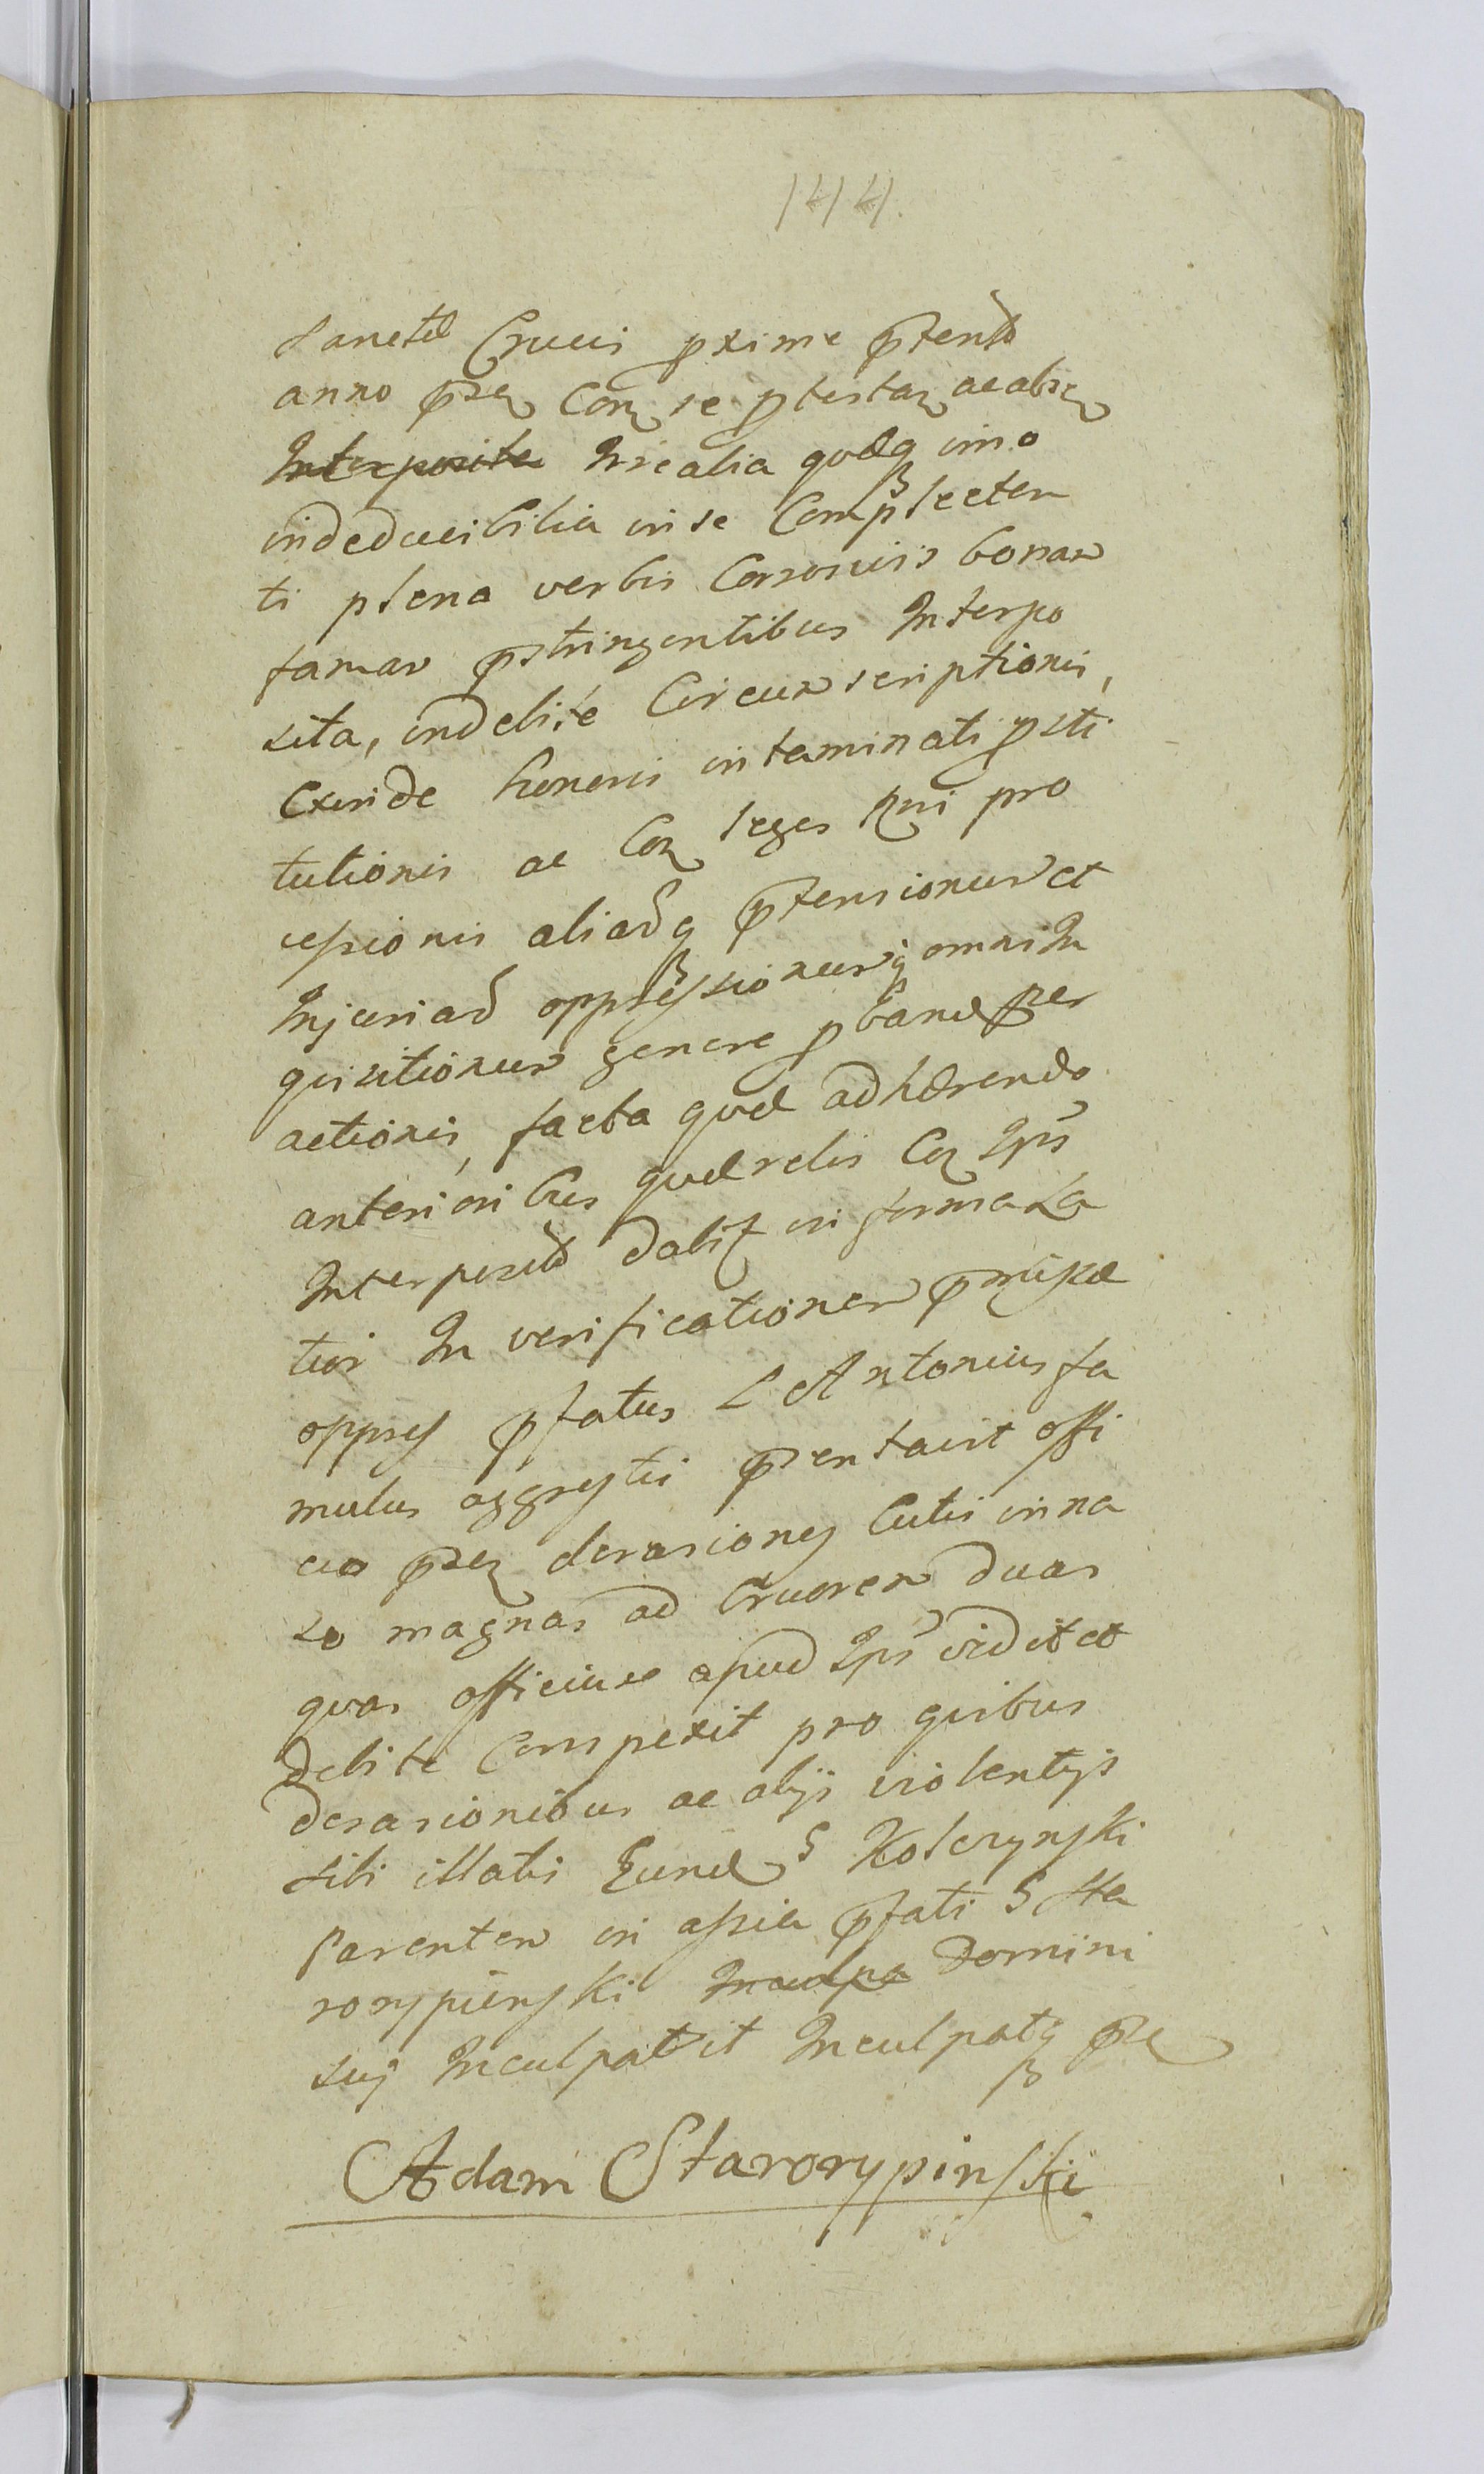 1414.
Sanctæ Crucis pxime pterito
anno psen Con se ptestan ac alia
Interposita Irrealia quæq imo
indeducibilia in se Complecten
ti plena verbis Consonuis bonam
famam pstringentibus Interpo
sita, indebite Circumscriptionis,
Exinde honoris intaminati psti
tutionis ac Con leges Rni pro
cessionis aliarq ptensionum et
Injuriar oppressionumq omni In
quisitionum genere pbandæ per
actionis, facta quæ adhærendo
anterioribus quærelis Con Ips
Interpositis dabit informata
tur In verificationem pmissæ
oppres pfatus L Antonius fa
mulus aggresti psentavit offi
cio psen derasiones Cutis in na
so magnas ad Cruorem duas
quas officiuse apud Ips vidit et
debite Conspexit pro quibus
derasionibus ac alijs violentijs
sibi illatis Eund G Kolczynski
Parentem in assia pfati G Sta
rorypienski Inculpa Domini
suj Inculpavit Inculpatq pse
Adam Starorypinski